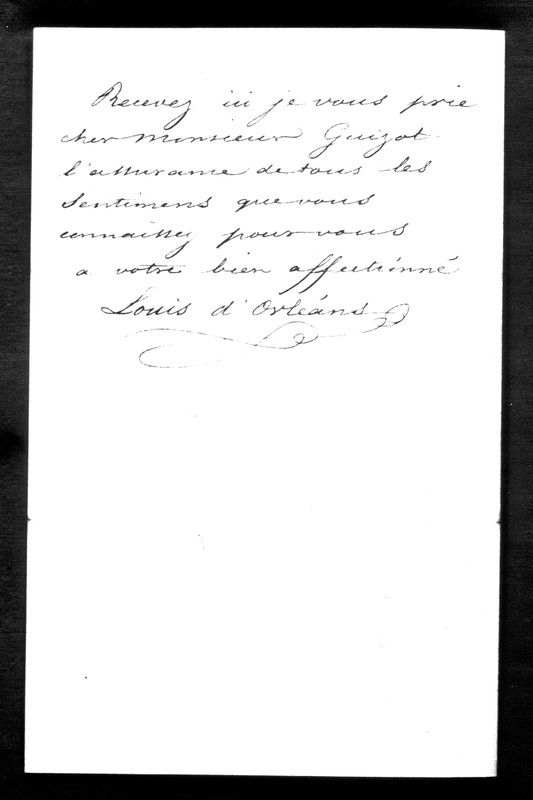 Recevez ici je vous prie
cher Monsieur Guizot
l'assurance de tous les
sentimens que vous
connaissez pour vous
a votre bien affectionné
Louis d'Orléans